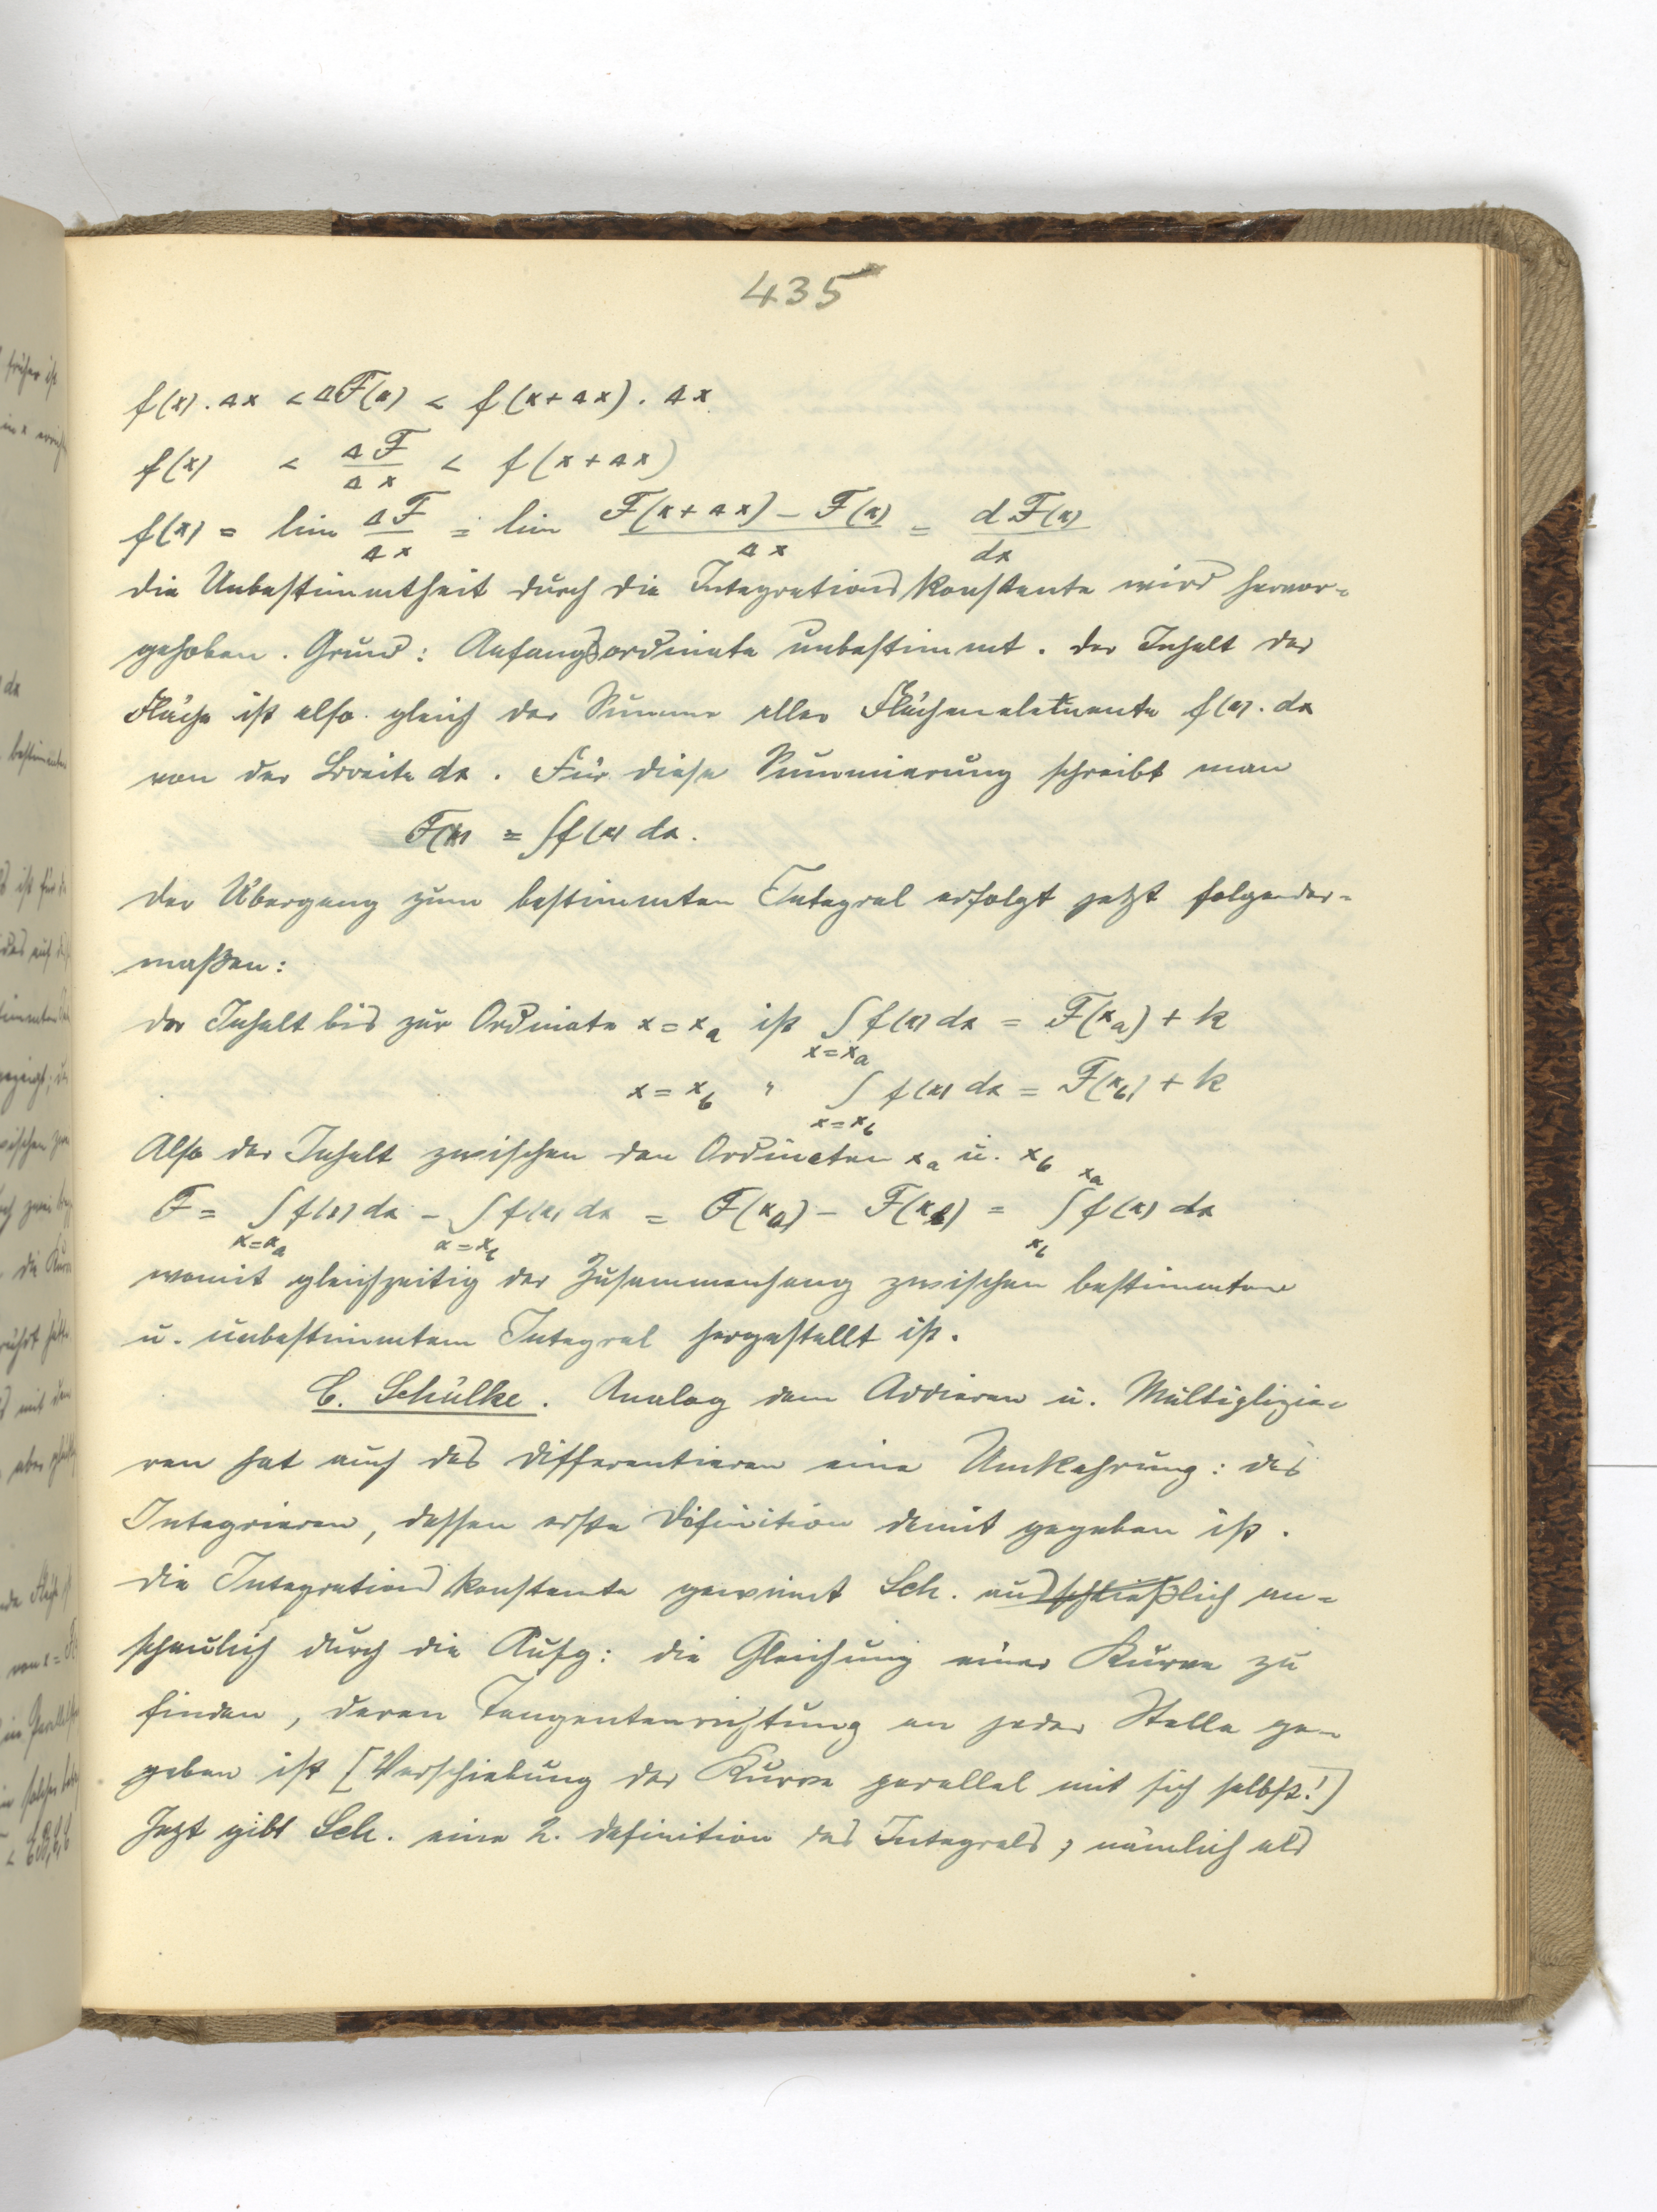 435
f(x) . Δx < ΔF(x) < f(x+Δx) . Δx
f(x) < ΔF/Δx < f(x+Δx)
f(x) = lim ΔF/Δx = lim F(x+Δx) – F(x)/Δx = dF(x)/dx
die Unbestimmtheit durch die Integrationskonstante wird hervor=
gehoben. Grund: Anfangsordinate unbestimmt. Der Inhalt der
Fläche ist also gleich der Summe aller Flächenelemente f(x). dx
von der Breite dx. Für diese Summierung schreibt man
F(x) = ∫f(x) dx.
Der Übergang zum bestimmten Integral erfolgt jetzt folgender=
maßen:
der Inhalt bis zur Ordinate x = xₐ ist ∫f(x) dx = F(xₐ) + k
x=xₐ
x = x_b " ∫ f(x) dx = F(x_b) + k
x=x_b
Also der Inhalt zwischen den Ordinaten xₐ u. x_b
F = ∫f(x) dx – ∫f(x) dx = F(xₐ) – F(x_b) = ∫f(x) dx
x=xₐ x=x_b x_b xₐ
womit gleichzeitig der Zusammenhang zwischen bestimmtem
u. unbestimmtem Integral hergestellt ist.
C. Schülke. Analog dem Addieren u. Multiplizie=
ren hat auch das Differentieren eine Umkehrung: das
Integrieren, dessen erste Definition damit gegeben ist.
Die Integrationskonstante gewinnt Sch. ausschließlich an=
schaulich durch die Aufg: die Gleichung einer Kurve zu
finden, deren Tangentenrichtung an jeder Stelle ge=
geben ist [Verschiebung der Kurve parallel mit sich selbst!]
Jezt gibt Sch. eine 2. Definition des Integrals, nämlich als